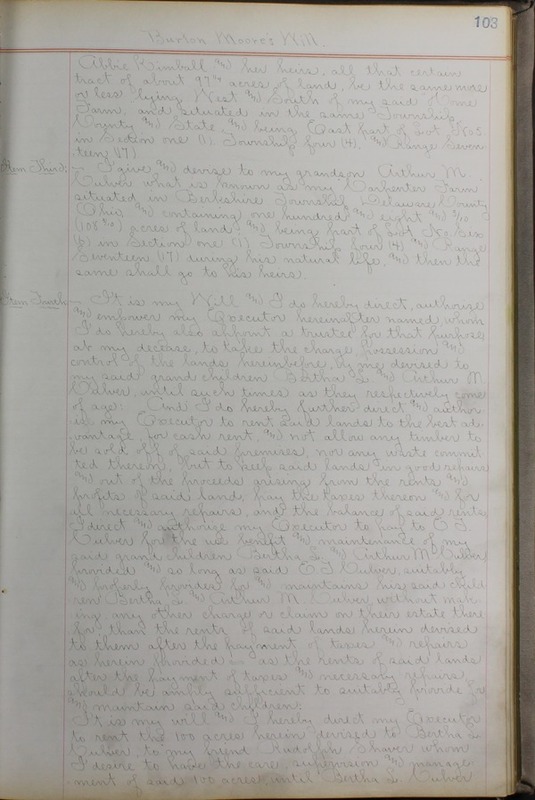 103
Burton Moore's Will.
Abbie Kimball, and her heirs, all that certain
tract of about 97 acres of land, be the same more
or less lying West and South of my said Home
Farm, and situated in the same Township,
County and State, and being East part of Lot No 5
in Section one (1) Township four (4), and Range Seven-
teen (17)
Item Third:— I give and devise to my grandson Arthur M.
Culver what is known as my Carpenter Farm
situated in Berkshire Township Delaware County
Ohio, and containing one hundred and eight and
acres of land, and being part of Lot No Six
(6) in Section one (1) Township four (4) and Range
Seventeen (17) during his natural life, and then the
same shall go to his heirs.
Item Fourth— It is my Will and I do hereby direct, authorize
and empower my Executor hereinafter named whom
I do hereby also appoint a trustee for that purpose
at my decease, to take the charge, possession and
control of the lands hereinbefore, by me devised to
my said grand children Bertha L. and Arthur M.
Culver, until such times as they respectively come
of age: And I do hereby further direct, and author-
ize my Executor to rent said lands to the best ad-
vantage, for cash rent, and not allow any timber to
be sold off of said premises, nor any waste commit
ted thereon, but to keep said lands in good repairs
and out of the proceeds arising from the rents and
profits of said land, pay the taxes thereon and for
all necessary repairs, and the balance of said rents,
I direct and authorize my Executor to pay to E. J.
Culver for the use benefit and maintenance of my
said grand children Bertha L. and Arthur M. Culver,
provided and so long as said E. J. Culver, suitably
and properly provides for and maintains his said child
ren Bertha L. and Arthur M. Culver, without mak-
ing any other charge or claim on their estate there
for than the rents of said lands herein devised
to them after the payment of taxes and repairs
as herein provided — as the rents of said lands
after the payment of taxes and necessary repairs
should be amply sufficient to suitably provide for
and maintain said children:
It is my will and I hereby direct my Executor
to rent the 100 acres herein devised to Bertha L.
Culver, to my friend Rudolph Shaver whom
I desire to have the care, supervision and manage-
ment of said 100 acres, until Bertha L. Culver